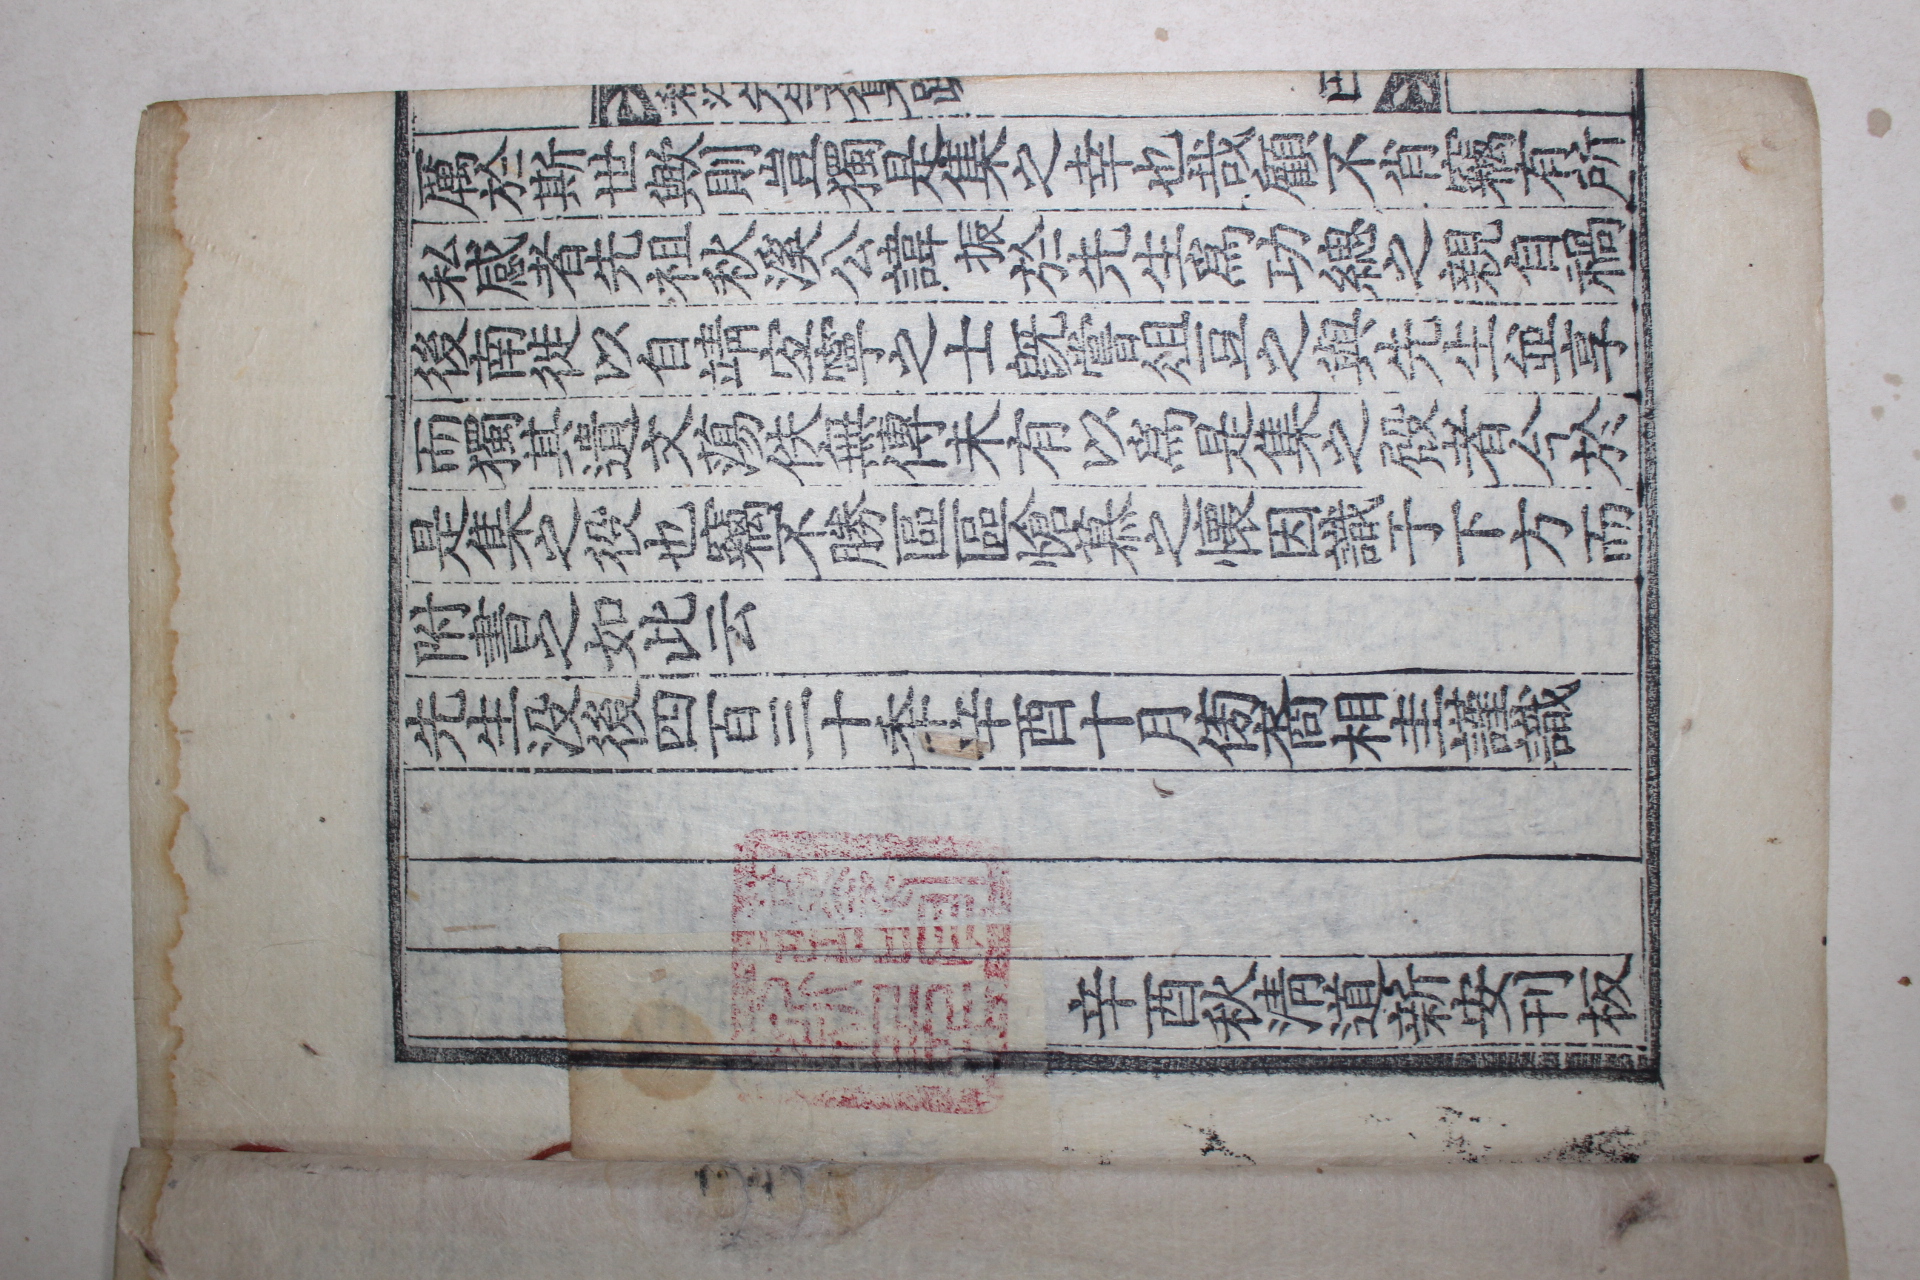 厲於斯世歟則豈獨是集之幸也哉顧不肖竊有所
私感者先祖秋溪公諱振於先生爲功緦之親自禍
後南徙以自靖寔寧之士旣嘗俎豆之與先生並享
而獨其遺文蕩佚無傳未有以爲是集之殿者今於
是集之役也竊不勝區區愴慕之懷因識于下方而
附書之如此云
先生没後四百三十秊辛酉十月傍裔相圭謹識
辛酉秋淸道新安刊板
先生文集跋